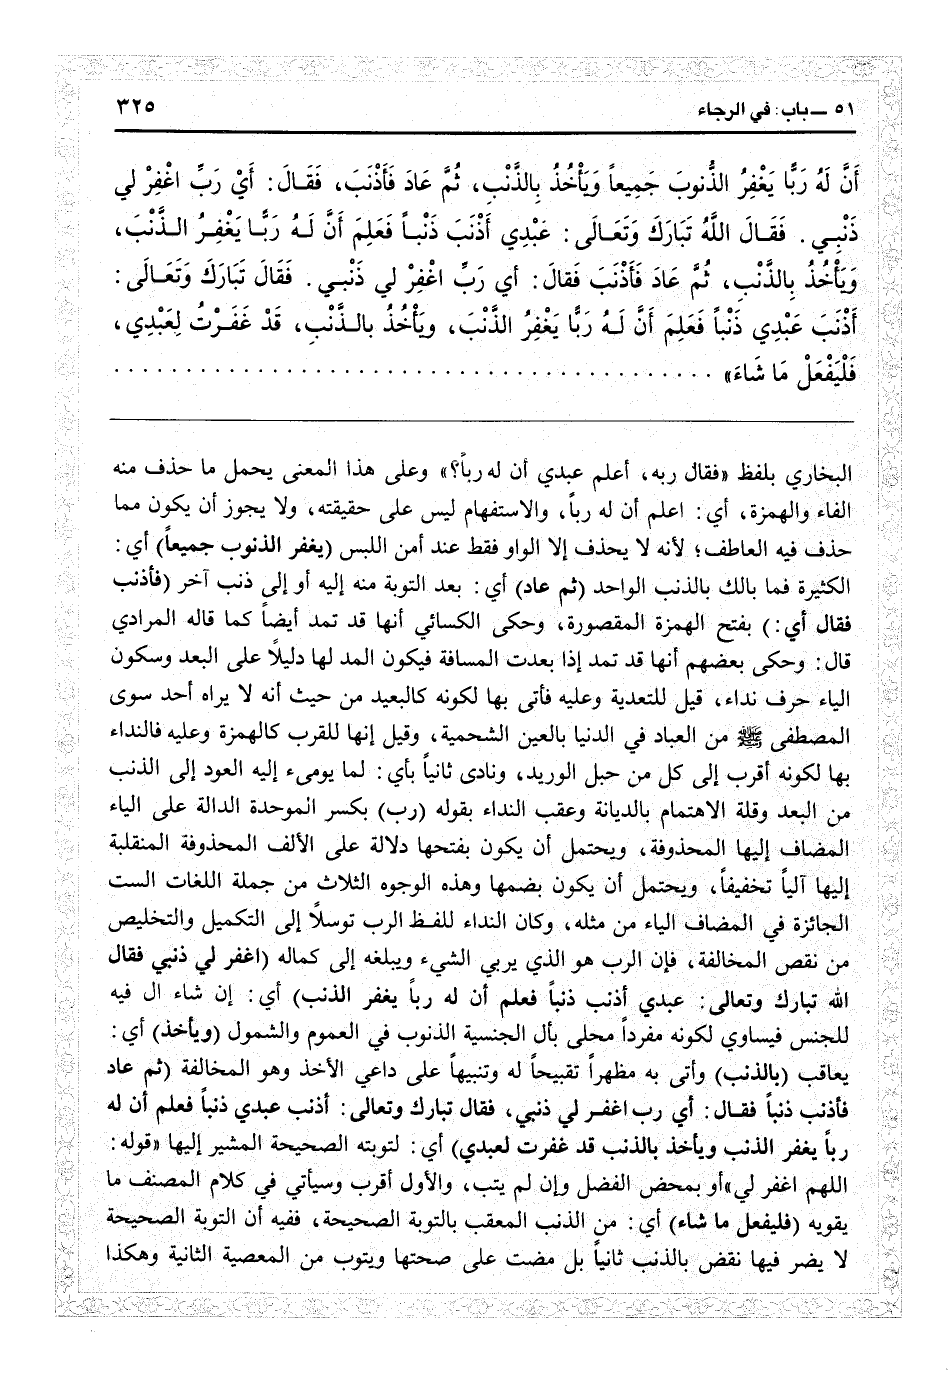 ٥١ ــ باب: في الرجاء
٣٢٥
أَنَّ لَهُ رَبًّا يَغْفِرُ الذُّنوبَ جَمِيعاً وَيَأْخُذُ بِالذَّنْبِ، ثُمَّ عَادَ فَأَذْنَبَ، فَقَالَ: أَيْ رَبِّ اغْفِرْ لي
ذَنْبِي. فَقَالَ اللَّهُ تَبَارَكَ وَتَعَالَى: عَبْدِي أَذْنَبَ ذَنْباً فَعَلِمَ أَنَّ لَهُ رَبًّا يَغْفِرُ الذَّنْبَ،
وَيَأْخُذُ بِالذَّنْبِ، ثُمَّ عَادَ فَأَذْنَبَ فَقالَ: أي رَبِّ اغْفِرْ لي ذَنْبِي. فَقَالَ تَبَارَكَ وَتَعَالَى:
أَذْنَبَ عَبْدِي ذَنْباً فَعَلِمَ أَنَّ لَهُ رَبًّا يَغْفِرُ الذَّنْبَ، ويَأْخُذُ بالذَّنْبِ، قَدْ غَفَرْتُ لِعَبْدِي،
فَلْيَفْعَلْ مَا شَاءَ» . . . . . . . . . . . . . . . . . . . . . . . . . . . . . . . . . . . . . . .
البخاري بلفظ «فقال ربه، أعلم عبدي أن له رباً؟» وعلى هذا المعنى يحمل ما حذف منه
الفاء والهمزة، أي: اعلم أن له رباً، والاستفهام ليس على حقيقته، ولا يجوز أن يكون مما
حذف فيه العاطف؛ لأنه لا يحذف إلا الواو فقط عند أمن اللبس (يغفر الذنوب جميعاً) أي:
الكثيرة فما بالك بالذنب الواحد (ثم عاد) أي: بعد التوبة منه إليه أو إلى ذنب آخر (فأذنب
فقال أي:) بفتح الهمزة المقصورة، وحكى الكسائي أنها قد تمد أيضاً كما قاله المرادي
قال: وحكى بعضهم أنها قد تمد إذا بعدت المسافة فيكون المد لها دليلاً على البعد وسكون
الياء حرف نداء، قيل للتعدية وعليه فأتى بها لكونه كالبعيد من حيث أنه لا يراه أحد سوى
المصطفى ﷺ من العباد في الدنيا بالعين الشحمية، وقيل إنها للقرب كالهمزة وعليه فالنداء
بها لكونه أقرب إلى كل من حبل الوريد، ونادى ثانياً بأي: لما يومىء إليه العود إلى الذنب
من البعد وقلة الاهتمام بالديانة وعقب النداء بقوله (رب) بكسر الموحدة الدالة على الياء
المضاف إليها المحذوفة، ويحتمل أن يكون بفتحها دلالة على الألف المحذوفة المنقلبة
إليها آلياً تخفيفاً، ويحتمل أن يكون بضمها وهذه الوجوه الثلاث من جملة اللغات الست
الجائزة في المضاف الياء من مثله، وكان النداء للفظ الرب توسلاً إلى التكميل والتخليص
من نقص المخالفة، فإن الرب هو الذي يربي الشيء ويبلغه إلى كماله (اغفر لي ذنبي فقال
الله تبارك وتعالى: عبدي أذنب ذنباً فعلم أن له رباً يغفر الذنب) أي: إن شاء ال فيه
للجنس فيساوي لكونه مفرداً محلى بأل الجنسية الذنوب في العموم والشمول (ويأخذ) أي:
يعاقب (بالذنب) وأتى به مظهراً تقبيحاً له وتنبيهاً على داعي الأخذ وهو المخالفة (ثم عاد
فأذنب ذنباً فقال: أي رب اغفر لي ذنبي، فقال تبارك وتعالى: أذنب عبدي ذنباً فعلم أن له
رباً يغفر الذنب ويأخذ بالذنب قد غفرت لعبدي) أي: لتوبته الصحيحة المشير إليها «قوله:
اللهم اغفر لي»أو بمحض الفضل وإن لم يتب، والأول أقرب وسيأتي في كلام المصنف ما
يقويه (فليفعل ما شاء) أي: من الذنب المعقب بالتوبة الصحيحة، ففيه أن التوبة الصحيحة
لا يضر فيها نقض بالذنب ثانياً بل مضت على صحتها ويتوب من المعصية الثانية وهكذا